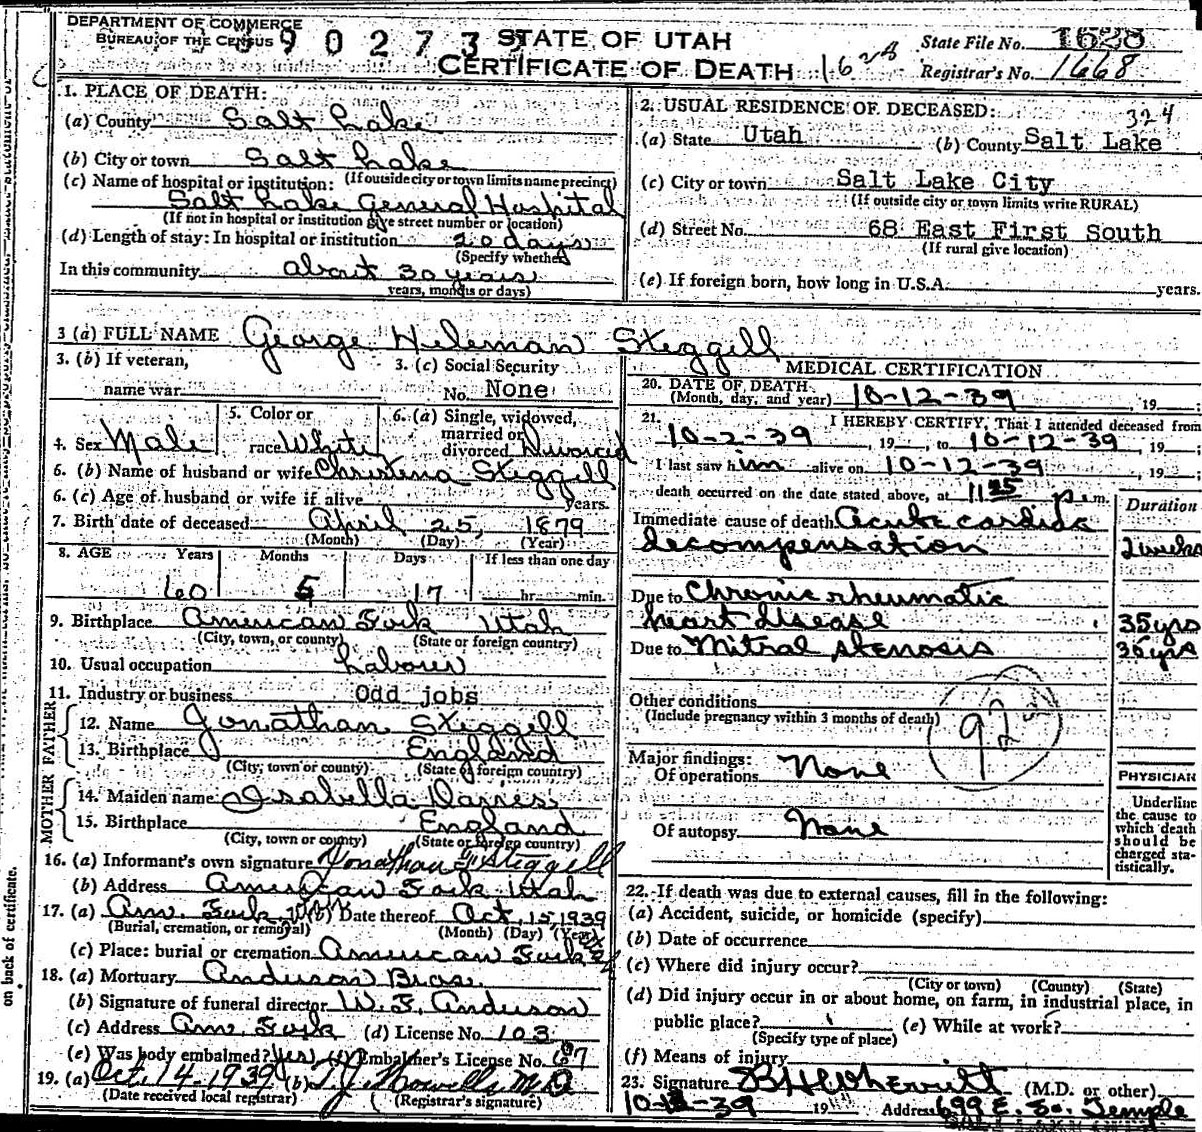 DEPARTMENT OF COMMERCE
BUREAU OF THE CENSUS
STATE OF UTAH
CERTIFICATE OF DEATH
State File No. 1628
Registrar's No. 1668
1. PLACE OF DEATH:
(a) County Salt Lake
(b) City or town Salt Lake
(If outside city or town limits name precinct)
(c) Name of hospital or institution:
Salt Lake General Hospital
(If not in hospital or institution give street number or location)
(d) Length of stay: In hospital or institution 20 days
(Specify whether
In this community about 30 years
years, months or days)
2. USUAL RESIDENCE OF DECEASED:
324
(a) State Utah (b) County Salt Lake
(c) City or town Salt Lake City
(If outside city or town limits write RURAL)
(d) Street No. 68 East First South
(If rural give location)
(e) If foreign born, how long in U.S.A. years.
3 (a) FULL NAME George Heleman Steggell
3. (b) If veteran,
name war
3. (c) Social Security
No. None
4. Sex Male
5. Color or
race White
6. (a) Single, widowed,
married or
divorced Divorced
6. (b) Name of husband or wife Christina Steggell
6. (c) Age of husband or wife if alive years.
7. Birth date of deceased April 25, 1879
(Month) (Day) (Year)
8. AGE Years Months Days If less than one day
60 5 17 hr. min.
9. Birthplace American Fork Utah
(City, town, or county) (State or foreign country)
10. Usual occupation Labour
11. Industry or business Odd jobs
FATHER
12. Name Jonathan Steggell
13. Birthplace England
(City, town or county) (State or foreign country)
MOTHER
14. Maiden name Isabella Davies
15. Birthplace England
(City, town or county) (State or foreign country)
16. (a) Informant's own signature Jonathan Steggell
(b) Address American Fork Utah
17. (a) Am. Fork, (b) Date thereof Oct. 15, 1939
(Burial, cremation, or removal) (Month) (Day) (Year)
(c) Place: burial or cremation American Fork
18. (a) Mortuary Anderson Bros.
(b) Signature of funeral director W. E. Anderson
(c) Address Am. Fork (d) License No. 103
(e) Was body embalmed? Yes (f) Embalmer's License No. 67
19. (a) Oct. 14-1939 (b) T. J. Howells M.D.
(Date received local registrar) (Registrar's signature)
MEDICAL CERTIFICATION
20. DATE OF DEATH
(Month, day, and year) 10-12-39, 19
21. I HEREBY CERTIFY, That I attended deceased from
10-2-39, 19, to 10-12-39, 19;
I last saw him alive on 10-12-39, 19;
death occurred on the date stated above, at 1125 p.m.
Duration
Immediate cause of death Acute cardiac
decompensation 2 weeks
Due to Chronic rheumatic
heart disease 35 yrs
Due to Mitral stenosis 35 yrs
Other conditions
(Include pregnancy within 3 months of death)
92
Major findings:
Of operations None
Of autopsy None
PHYSICIAN
Underline
the cause to
which death
should be
charged sta-
tistically.
22. If death was due to external causes, fill in the following:
(a) Accident, suicide, or homicide (specify)
(b) Date of occurrence
(c) Where did injury occur?
(City or town) (County) (State)
(d) Did injury occur in or about home, on farm, in industrial place, in
public place? (e) While at work?
(Specify type of place)
(f) Means of injury
23. Signature (M.D. or other)
19 Address 699 E. So. Temple
on back of certificate.